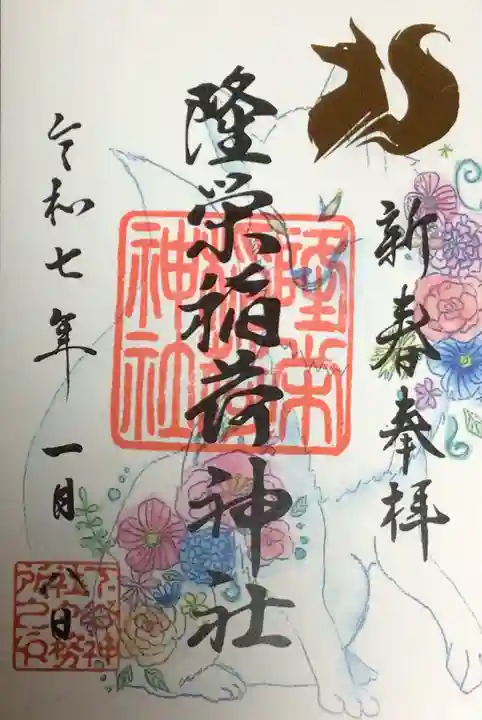 新春奉拝
隆栄稲荷神社
隆栄稲荷神社
令和七年 一月 八日